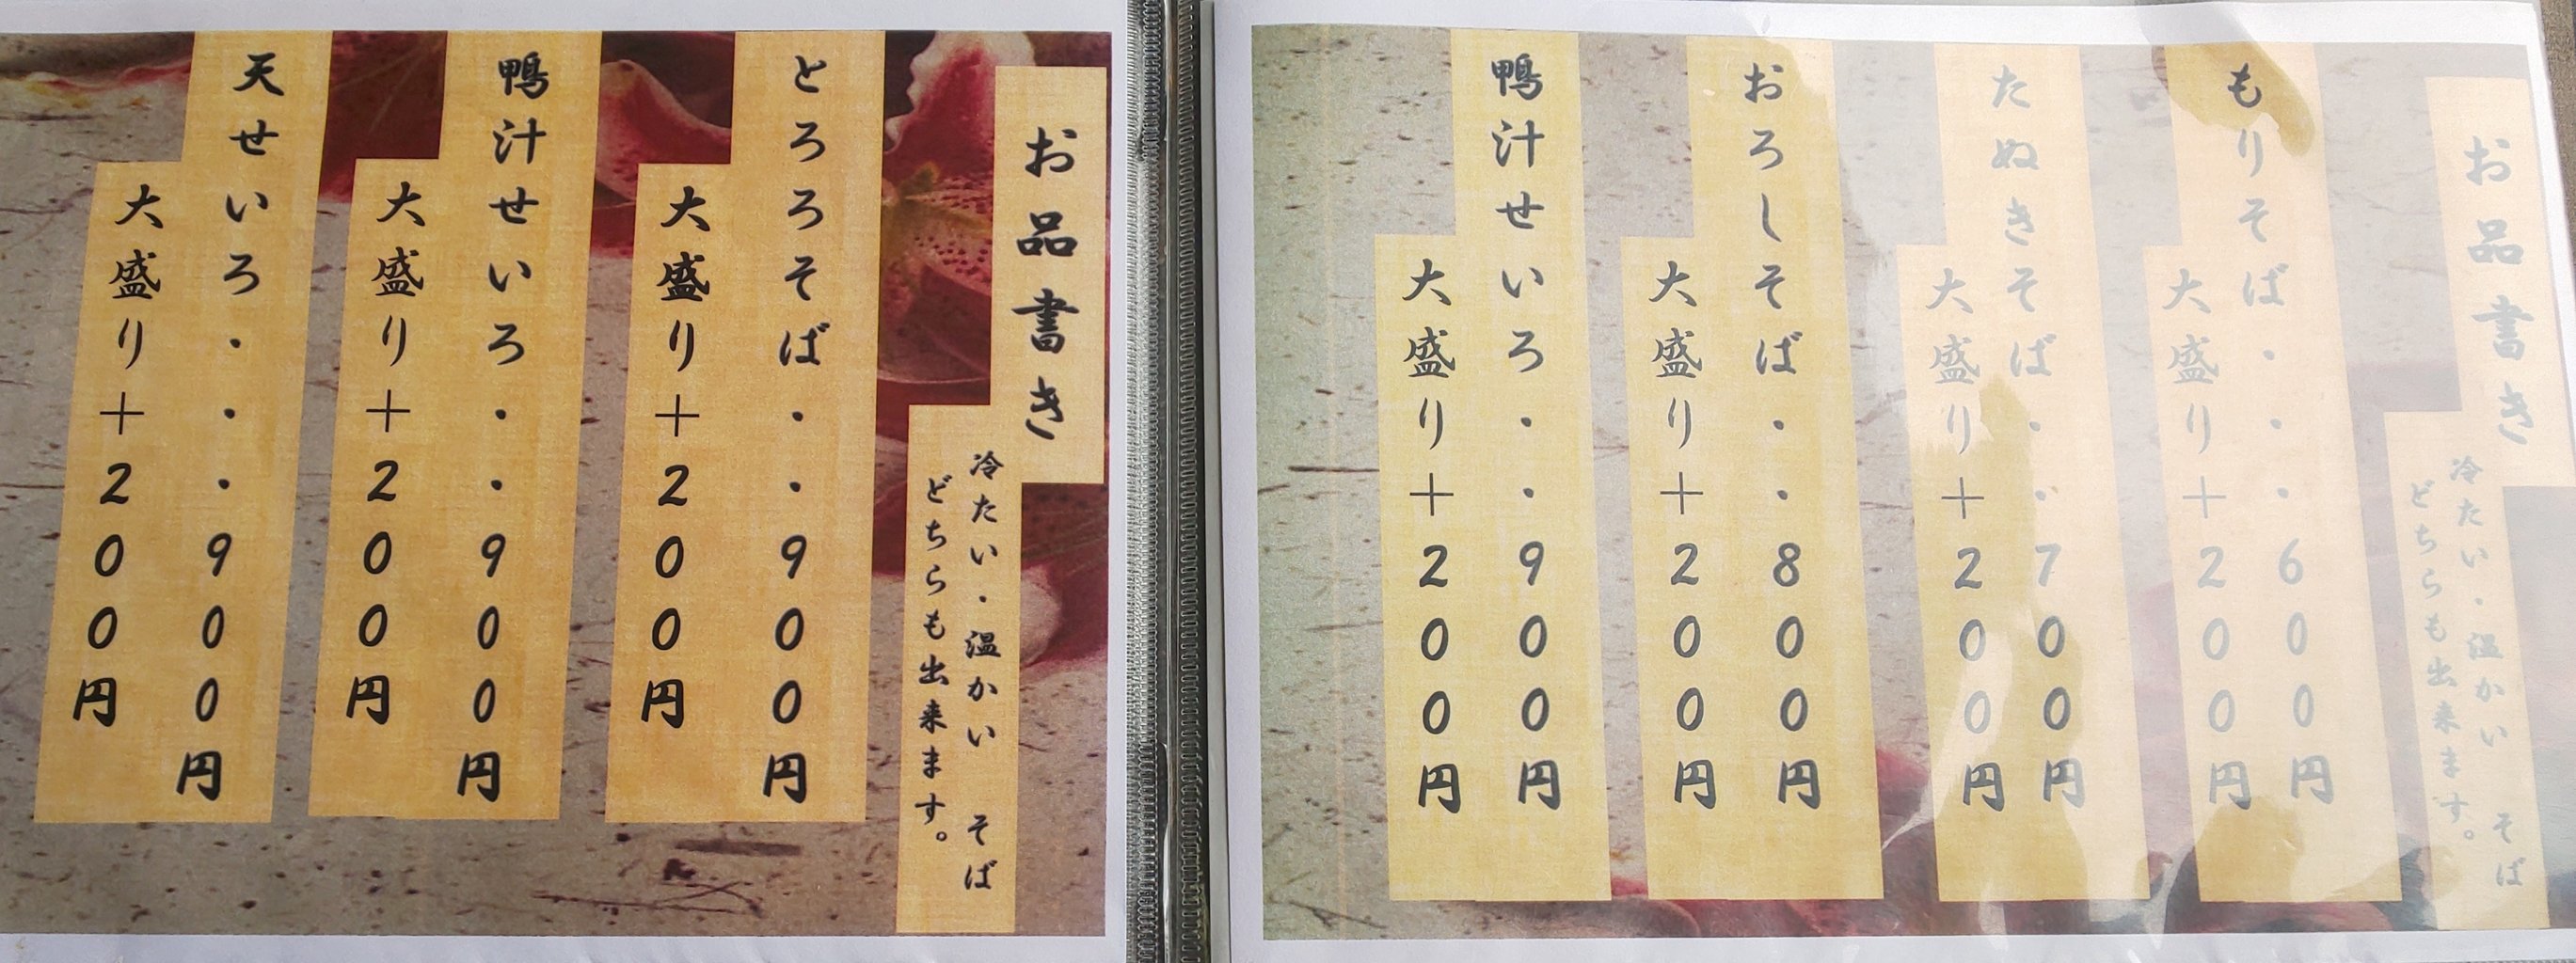 お品書き
冷たい・温かい そば
どちらも出来ます。
もりそば・・・600円
大盛り+200円
たぬきそば・・700円
大盛り+200円
おろしそば・・800円
大盛り+200円
鴨汁せいろ・・900円
大盛り+200円
お品書き
冷たい・温かい そば
どちらも出来ます。
とろろそば・・900円
大盛り+200円
鴨汁せいろ・・・900円
大盛り+200円
天せいろ・・・900円
大盛り+200円